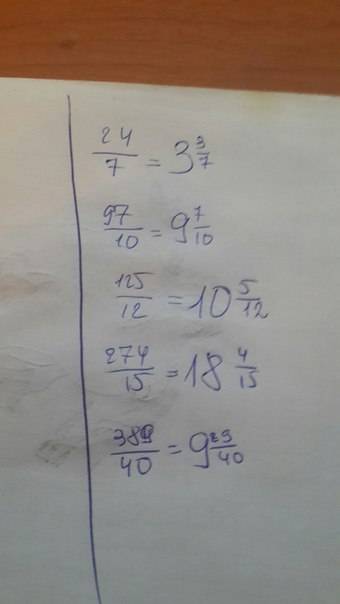 24/7 = 3 3/7
97/10 = 9 7/10
125/12 = 10 5/12
274/15 = 18 4/15
389/40 = 9 29/40